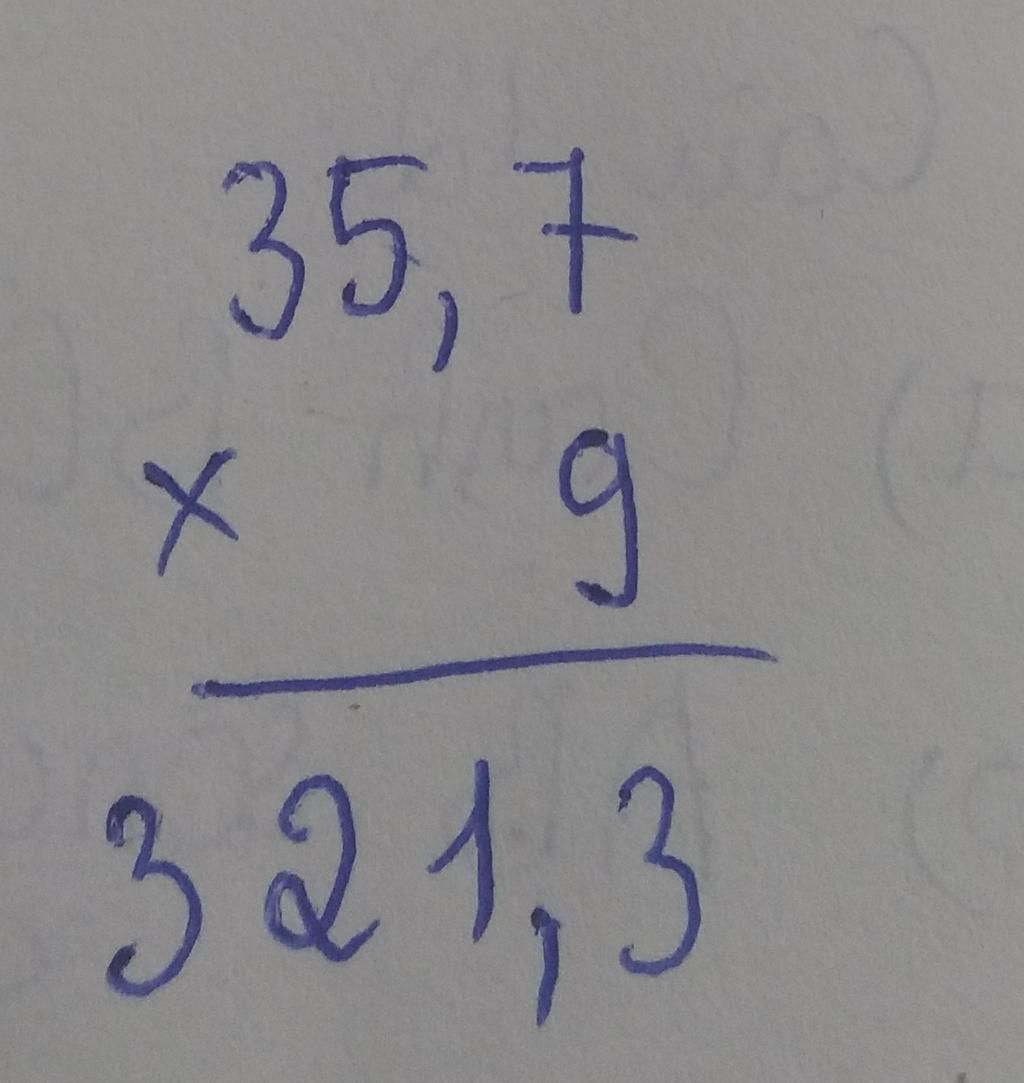 35,7
× 9
321,3